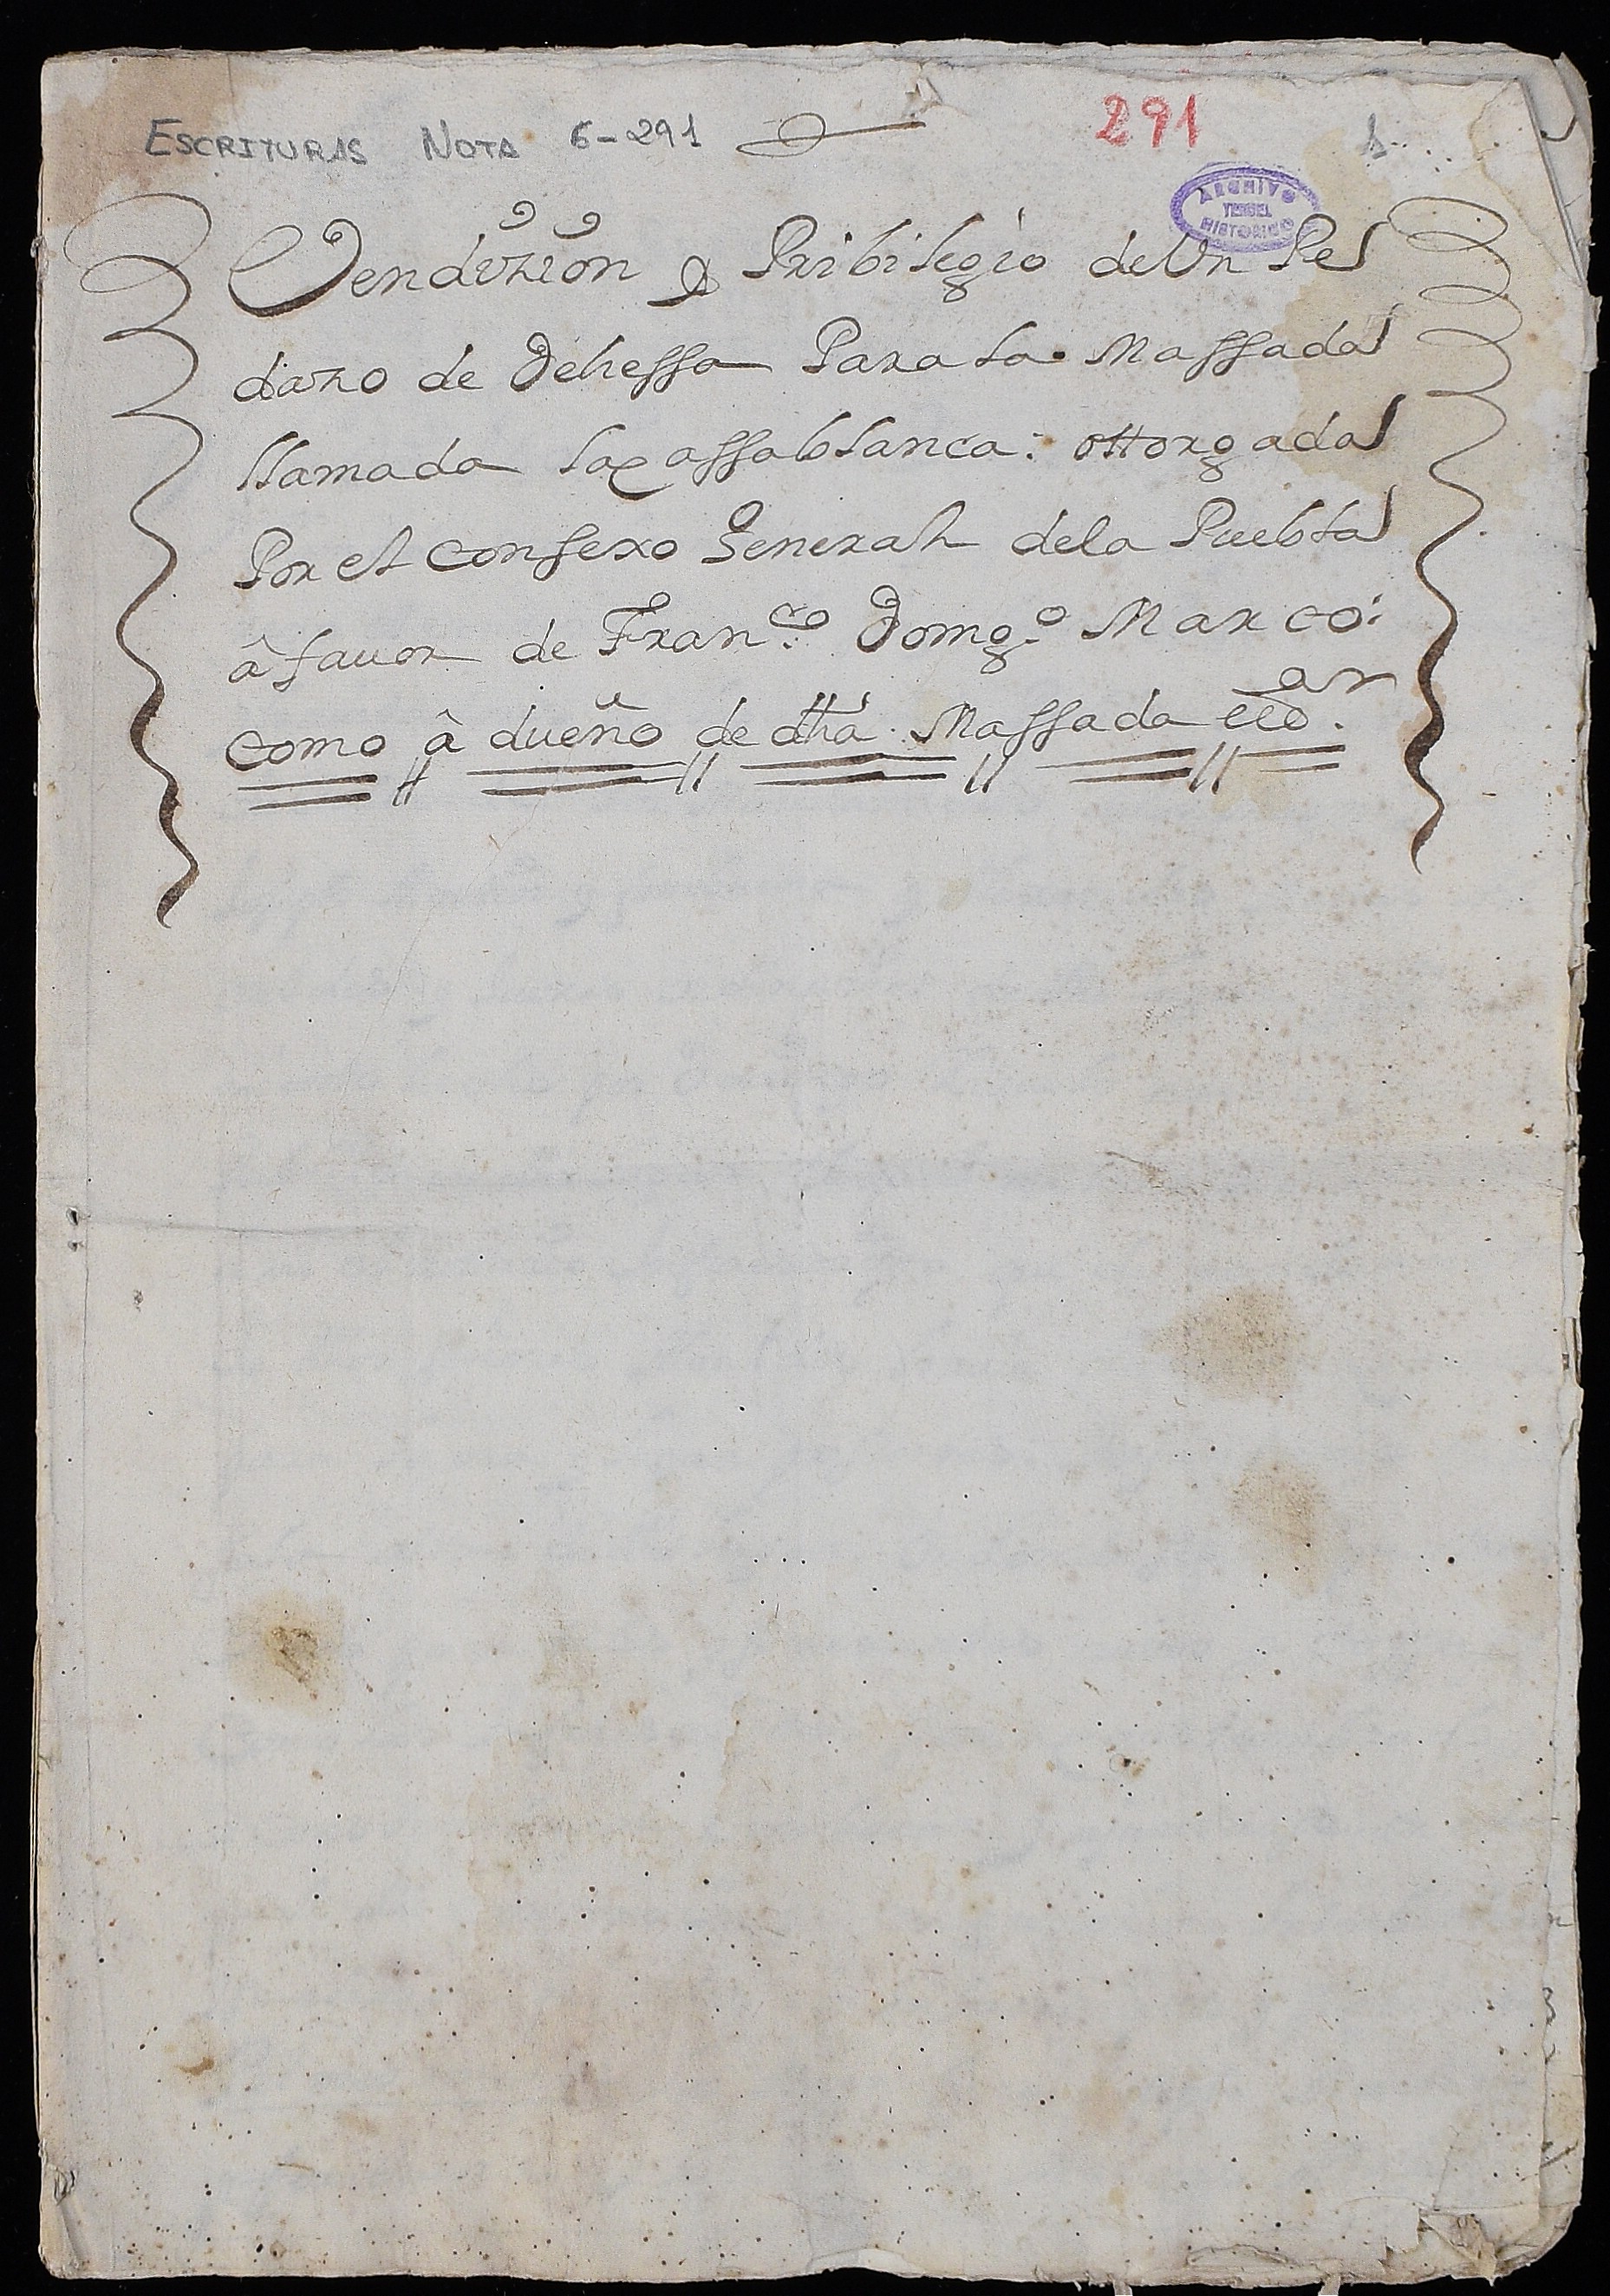 ESCRITURAS NOTA 6-291
291
1
ARCHIVO
TERUEL
HISTORICO
Vendizion y Pribilegio de Un Pe
dazo de Dehessa Para la Massada
llamada la Cassablanca: ottorgada
Por el Consexo General de la Puebla
â favor de Fran.co Domg.o Marco:
como â dueño de dha Massada